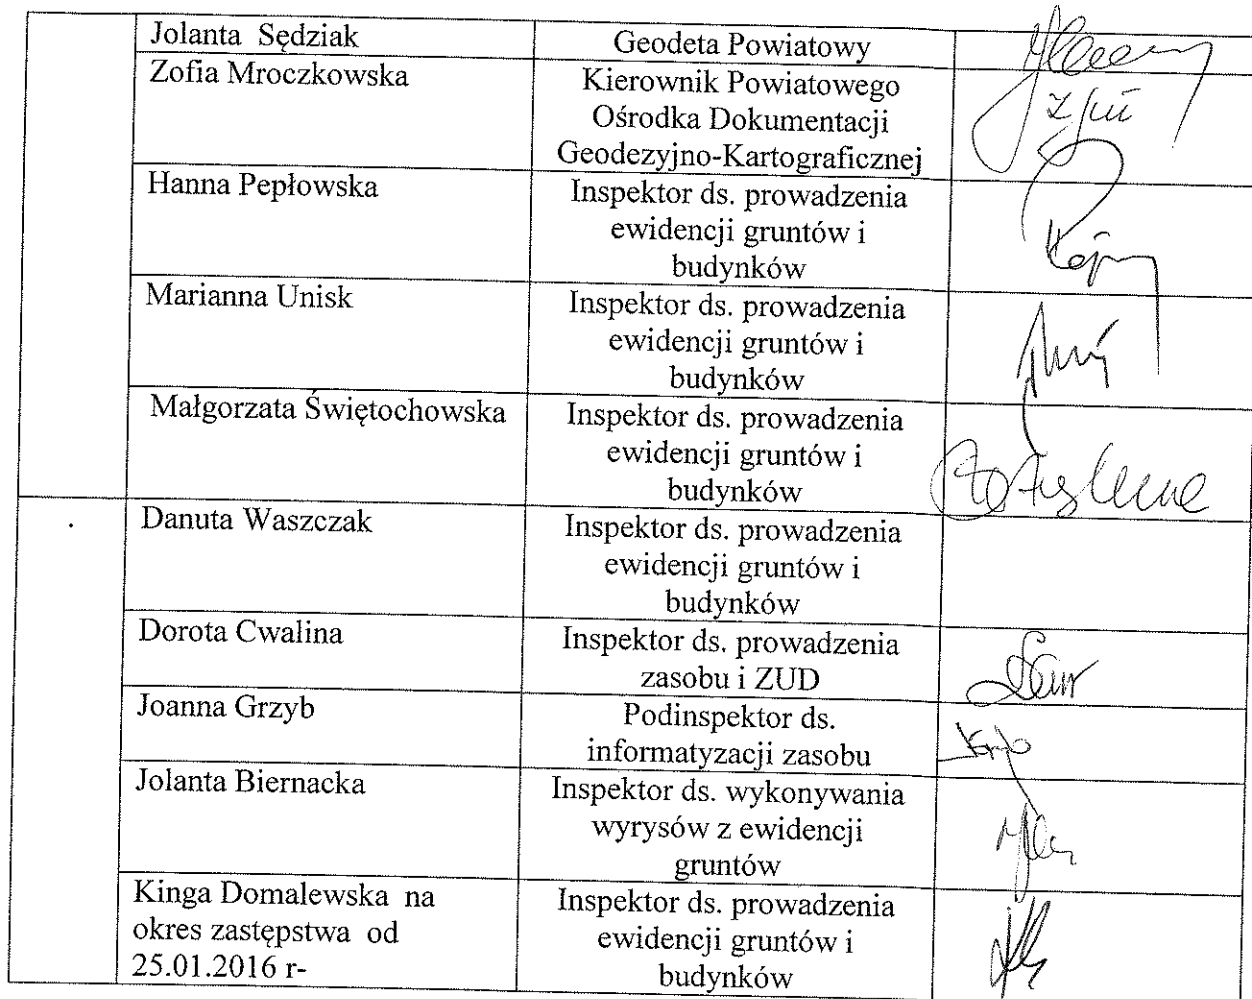 Jolanta Sędziak
Geodeta Powiatowy
Zofia Mroczkowska
Kierownik Powiatowego
Ośrodka Dokumentacji
Geodezyjno-Kartograficznej
Hanna Pepłowska
Inspektor ds. prowadzenia
ewidencji gruntów i
budynków
Marianna Unisk
Inspektor ds. prowadzenia
ewidencji gruntów i
budynków
Małgorzata Świętochowska
Inspektor ds. prowadzenia
ewidencji gruntów i
budynków
Danuta Waszczak
Inspektor ds. prowadzenia
ewidencji gruntów i
budynków
Dorota Cwalina
Inspektor ds. prowadzenia
zasobu i ZUD
Joanna Grzyb
Podinspektor ds.
informatyzacji zasobu
Jolanta Biernacka
Inspektor ds. wykonywania
wyrysów z ewidencji
gruntów
Kinga Domalewska na
okres zastępstwa od
25.01.2016 r-
Inspektor ds. prowadzenia
ewidencji gruntów i
budynków